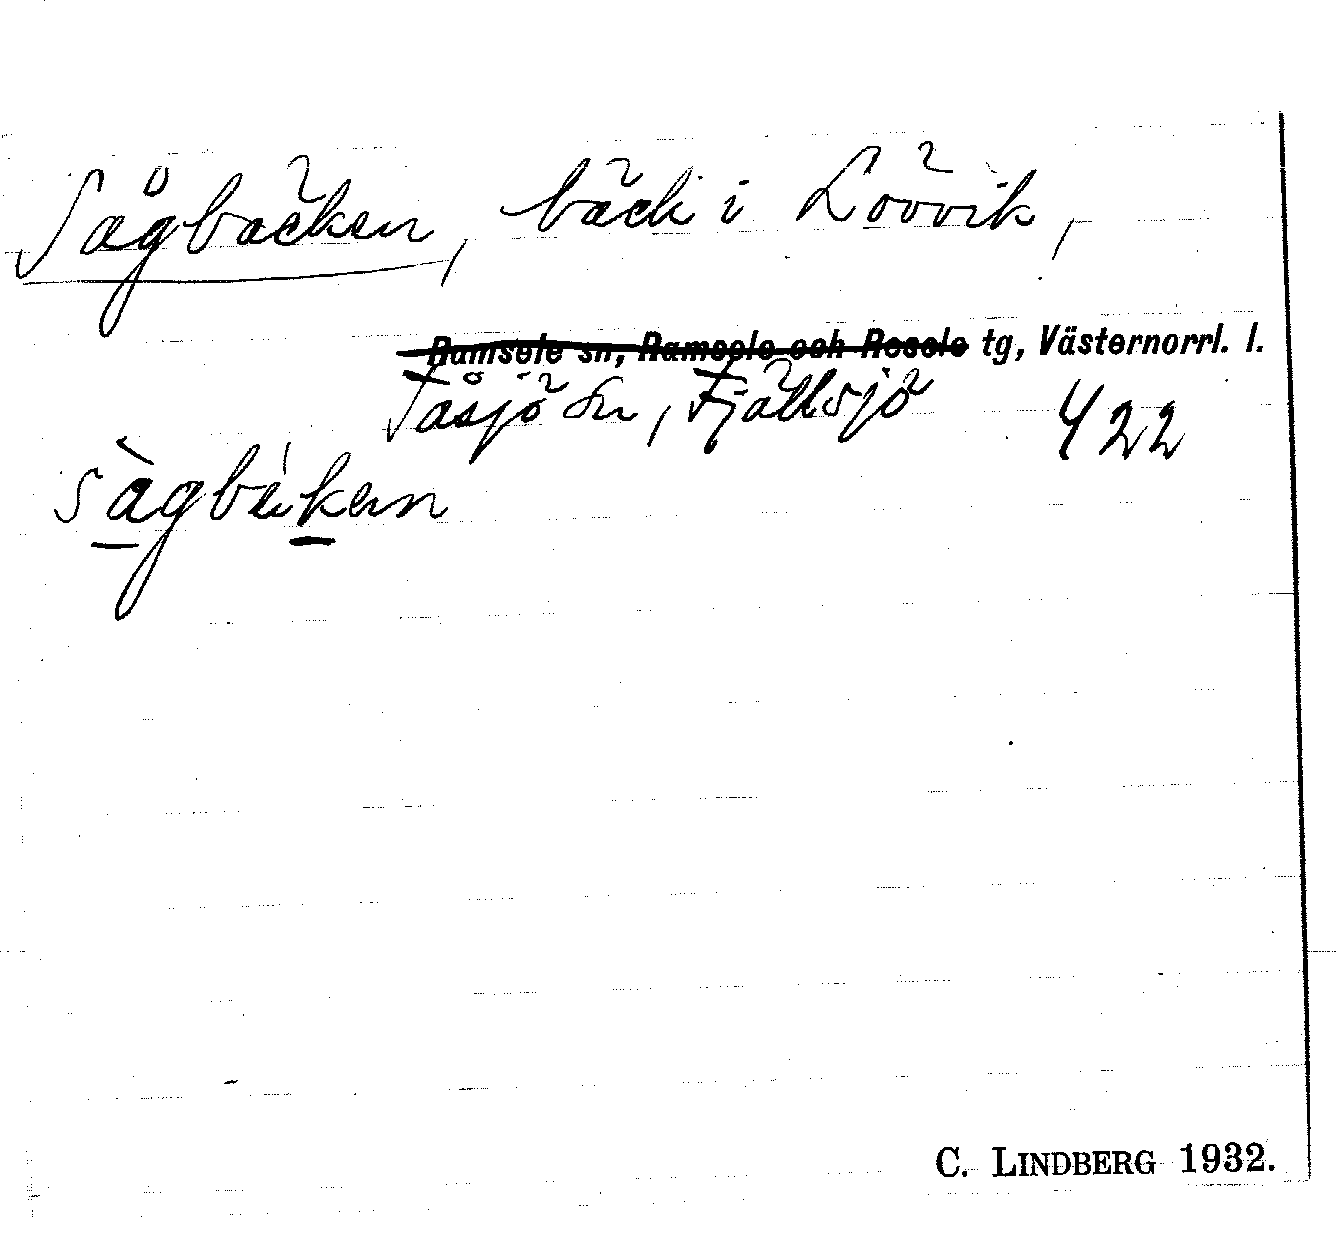 Sågbäcken, bäck i Lövvik,
Ramsele sn, Ramsele och Resele tg, Västernorrl. l.
Tåsjö sn, Fjällsjö 422
sàgbék̲en
C. LINDBERG 1932.